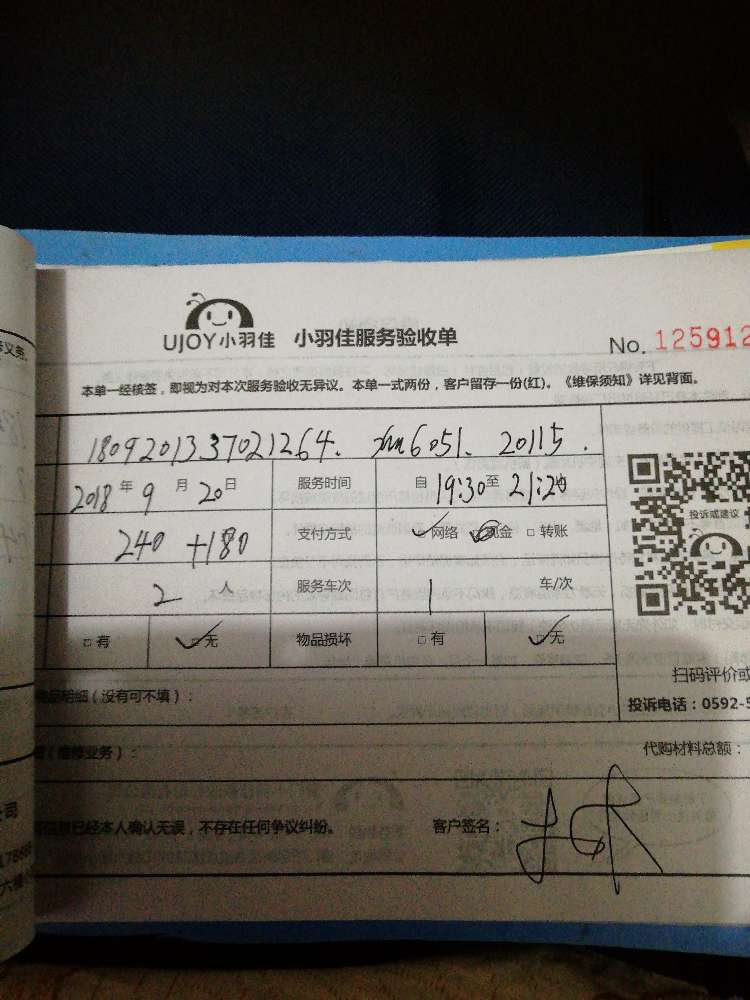 UJOY小羽佳 小羽佳服务验收单
No. 125912
本单一经核签，即视为对本次服务验收无异议。本单一式两份，客户留存一份(红)。《维保须知》详见背面。
18092013337021264. 6051. 20115.
2018年9月20日 服务时间 自19:30至21:20
240+180 支付方式 网络 现金 转账
2 人 服务车次 1 车/次
有 无 物品损坏 有 无
投诉或建议
扫码评价或
品明细（没有可不填）：
投诉电话：0592-5
（维修业务）：
代购材料总额：
已经本人确认无误，不存在任何争议纠纷。 客户签名：